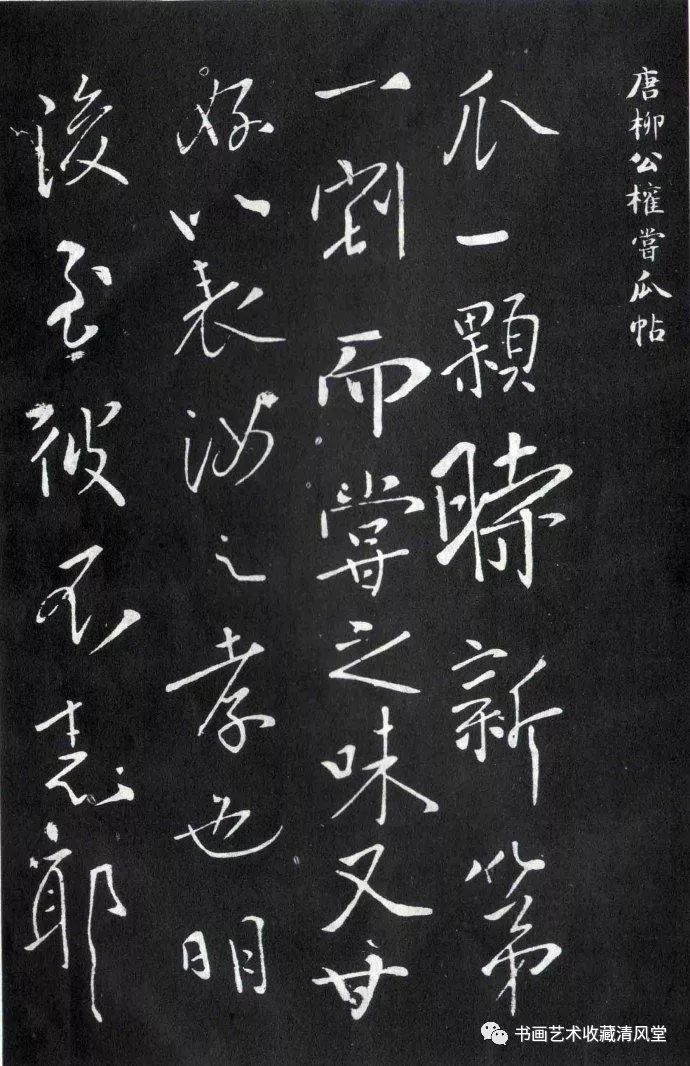 唐柳公權嘗瓜帖
瓜一顆時新第
一割而嘗之味又甘
好以表汝之孝也明
後至彼不志耶
书画艺术收藏清风堂